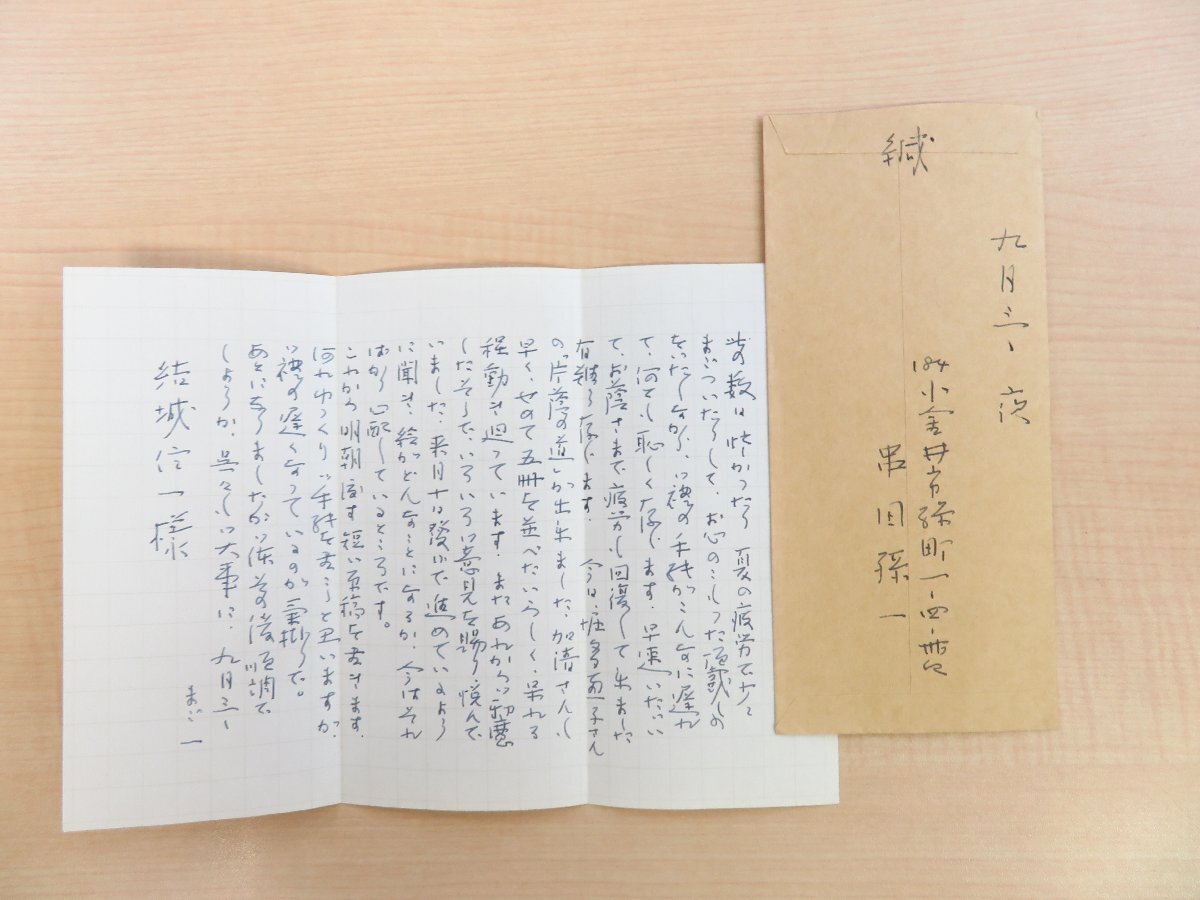 緘
九月三日 夜
184 小金井市緑町一ノ四ノ
串田孫一
此の数日 忙しかったり 夏の疲労で少々
まいったりして、お心のこもった頂戴もの
をいたしながら、御礼の手紙がこんなに遅れ
て、何とも恥しく存じます。早速いただい
て、お蔭さまで疲労も回復して来ました
有難う存じます。 今日、堀多恵子さん
の「片蔭の道」が出来ました。加清さんも
早く、せめて五冊を並べたいらしく、呆れる
程動き廻っています。またあれから御邪魔
したそうで、いろいろ御意見を賜り、悦んで
いました。来月十日発行で進めているよう
に聞き、絵がどんなことになるか、今はそれ
ばかり心配しているところです。
これから明朝渡す短い原稿を書きます。
何れゆっくり御手紙を書こうと思いますが、
御礼の遅くなっているのが気掛りで。
あとになりましたが御床の後順調で
しょうか。呉々も御大事に。 九月三日
まご一
結城信一様